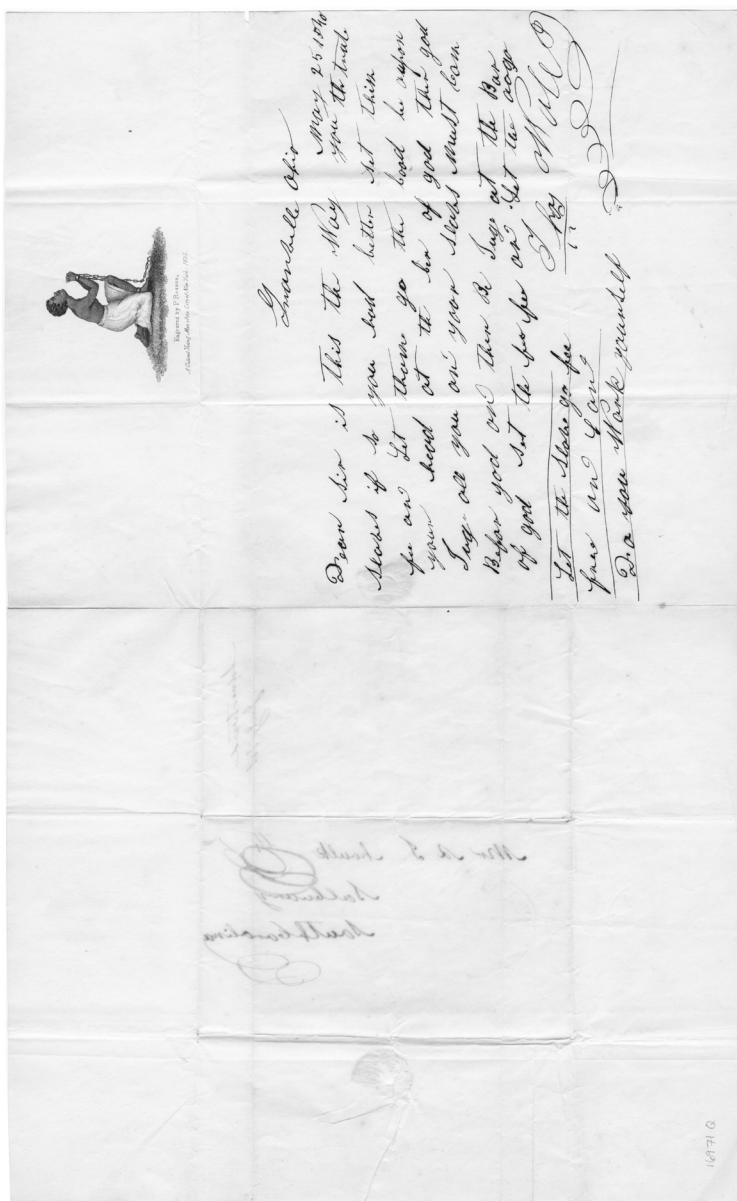 Engraved by P. Reason,
A Colored Young Man of the City of New York 1835
Granbille Ohio
May 25 1840
Dear Sir is this the Way you th trate
Slaves if so you had better set thim
fee and Let them go the bood be aupon
your head at the ber of god then god
Jug all you and your slaves Must Com
Befor god and then Be Juge at the Bar
of god set the fee fee and Let the
Let the slave go fee
free and
Do you Work yourself
Mr
Salsbury
North Carolina
16971 Q